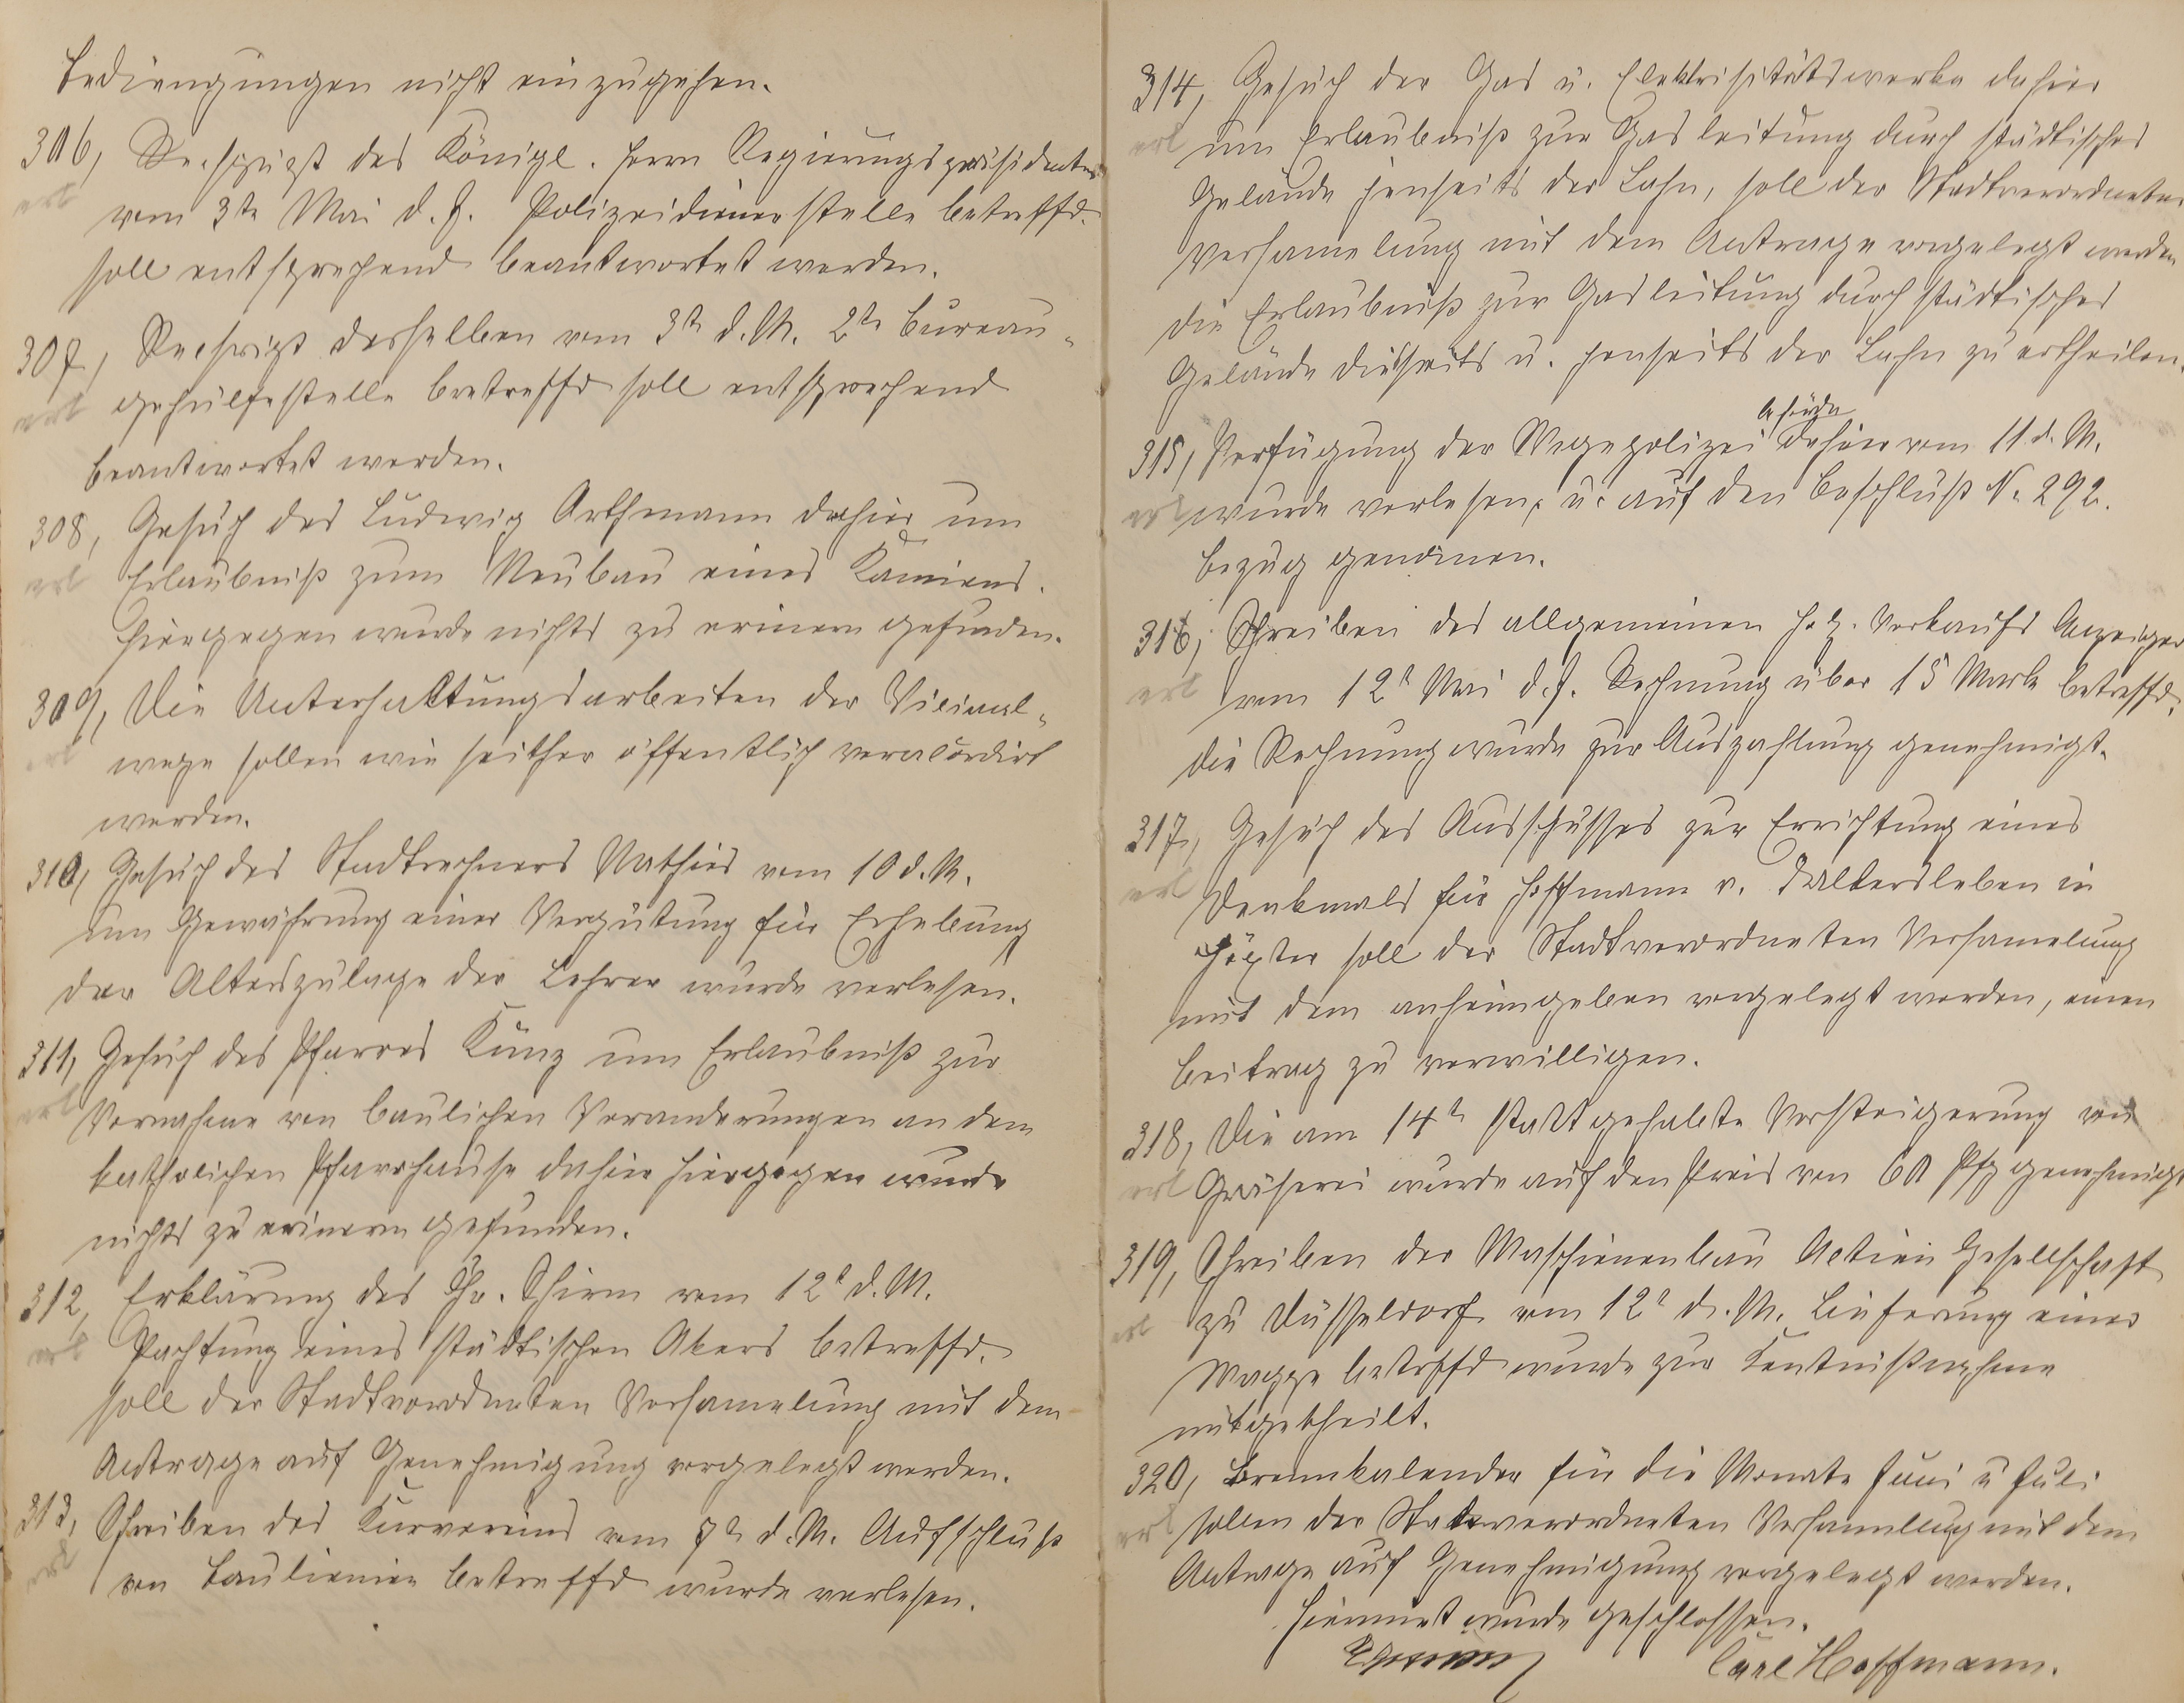 Bedingungen nicht einzugehen.
306, Rescript des Königl. Herrn Regierungspräsidenten
erl
vom 3te Mai d. J. Polizeidienerstelle betreffd.
soll entsprechend beantwortet werden.
307, Rescript desselben vom 3te d. M. 2te Bureau-
erl
gehülfestelle betreffd soll entsprechend
beantwortet werden.
308, Gesuch des Ludwig Arthmann dahier um
erl
Erlaubniß zum Neubau eines Kamiens.
Hiergegen wurde nichts zu erinern gefunden.
309, Die Unterhaltungsarbeiten der Vicinal-
erl
wege sollen wie seither öffentlich veraccordirt
werden.
310, Gesuch des Stadtrechners Mathies vom 10 d. M.
um Gewährung einer Vergütung für Erhebung
der Alterszulage der Lehrer wurde verlesen.
311, Gesuch des Pfarres Kunz um Erlaubniß zur
erl
Vornahme von baulichen Veranderungen an dem
katholichen Pfarrhause dahier hiergegen wurde
nichts zu erinern gefunden.
312, Erklärung des Chr. Schirm vom 12t d. M.
erl
Pachtung eines städtischen Akers betreffd.
soll der Stadtverordneten Versamelung mit dem
Antrage auf Genehmigung vorgelegt werden.
313, Schreiben des Kurvereins vom 7te d. M. Aufschluß
erl
von Baulienien betreffd wurde verlesen.
314, Gesuch der Gas u. Elektrisitätswerke dahier
erl
um Erlaubniß zur Gasleitung durch städtisches
Gelände jenseits der Lahn, soll der Stadtverordneten
Versamelung mit dem Antrage vorgelegt werden
die Erlaubniß zur Gasleitung durch städtisches
Gelände diesseits u. jenseits der Lahn zu ertheilen.
behörde
315, Verfügung der Wegepolizei dahier vom 11 d. M.
erl
wurde verlesen, u. auf den Beschluß N. 292.
bezug genomen.
316, Schreiben des allgemeinen Holz. Verkaufs Anzeiger
erl
vom 12t Mai d. J. Rechnung über 15 Mark betreffd.
die Rechnung wurde zur Auszahlung genehmigt.
317, Gesuch des Ausschusses zur Errichtung eines
erl
Denkmals für Hoffmann v. Fallersleben in
Höxter soll der Stadtverordneten Versamelung
mit dem anheimgeben vorgelegt werden, einen
Beitrag zu verwilligen.
318, Die am 14te stattgehabte Versteigerung von
erl
Gräserei wurde auf den Preis von 60 Pfg genehmigt
319, Schreiben der Maschienenbau Actien Gesellschaft
erl
zu Düsseldorf vom 12t d. M. Lieferung einer
Wagge betreffd wurde zur Kentnißnahme
mitgetheilt.
320, Brennkalender für die Monate Juni u Juli
erl
sollen der Stadtverordneten Versammlung mit dem
Antrage auf Genehmigung vorgelegt werden.
Hiermit wurde geschlossen.
Carl Hoffmann.